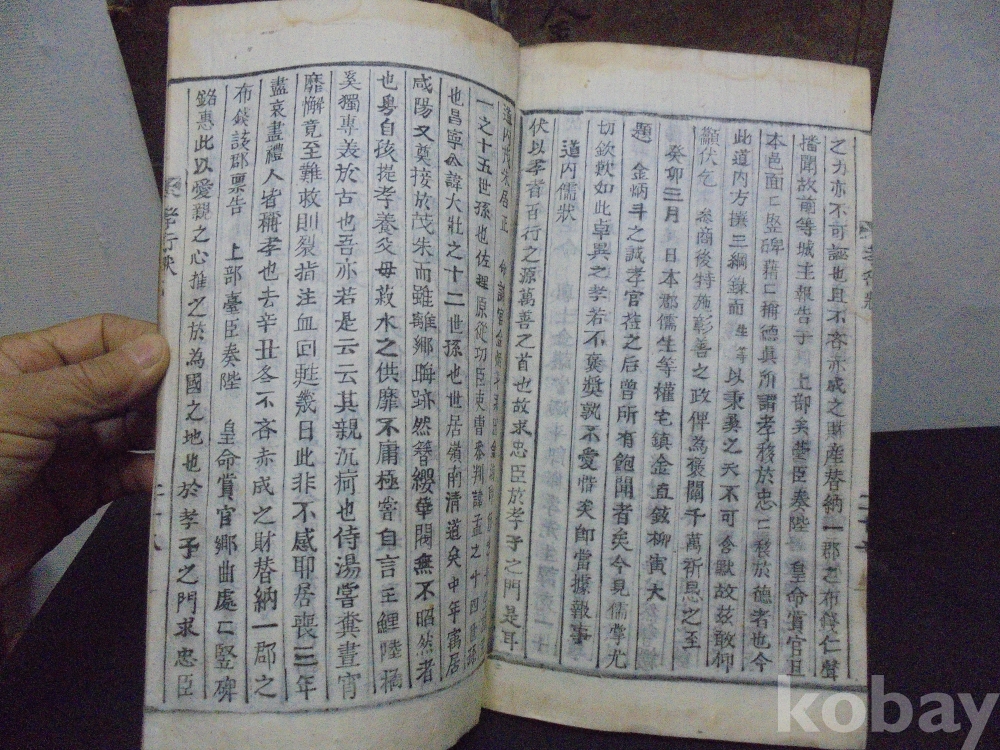 之力亦不可誣也且不吝赤成之財産替納一郡之布錢仁聲
播聞故前等城主報告于 上部矣臺臣奏陛 皇命賞官且
本邑面面竪碑藉藉稱德眞所謂孝移於忠忠移於德者也今
此道内方撰三綱錄而生等以秉彛之天不可含默故玆敢仰
顒伏乞 參商後特施彰善之政俾爲褒闡千萬祈恳之至
癸卯三月 日本郡儒生等權宅鎭金直鉉柳寅大
題 金炳斗之誠孝官莅之后曾所有飽聞者矣今見儒掌尤
切欽歎如此卓異之孝若不褒奬孰不愛慕矣卽當據報事
道内儒狀
伏以孝者百行之源萬善之首也故求忠臣於孝子之門是耳
一之十五世孫也佐理原從功臣吏曹參判諱孟之十四世孫
也昌寧公諱大壯之十二世孫也世居嶺南清道矣中年寓居
咸陽又奠接於茂朱而雖離鄉晦跡然簪纓華閥無不昭然者
也粤自孩提孝養父母菽水之供靡不庸極嘗自言王鯉陸橘
奚獨專美於古也吾亦若是云云其親沉痾也侍湯嘗糞晝宵
靡懈竟至難救則裂指注血回甦幾日此非不感耶居喪三年
盡哀盡禮人皆稱孝也去辛丑冬不吝赤成之財替納一郡之
布錢該郡禀告 上部臺臣奏陛 皇命賞官鄉曲處處竪碑
銘惠此以愛親之心推之於爲國之地也於孝子之門求忠臣
孝行狀
kobay